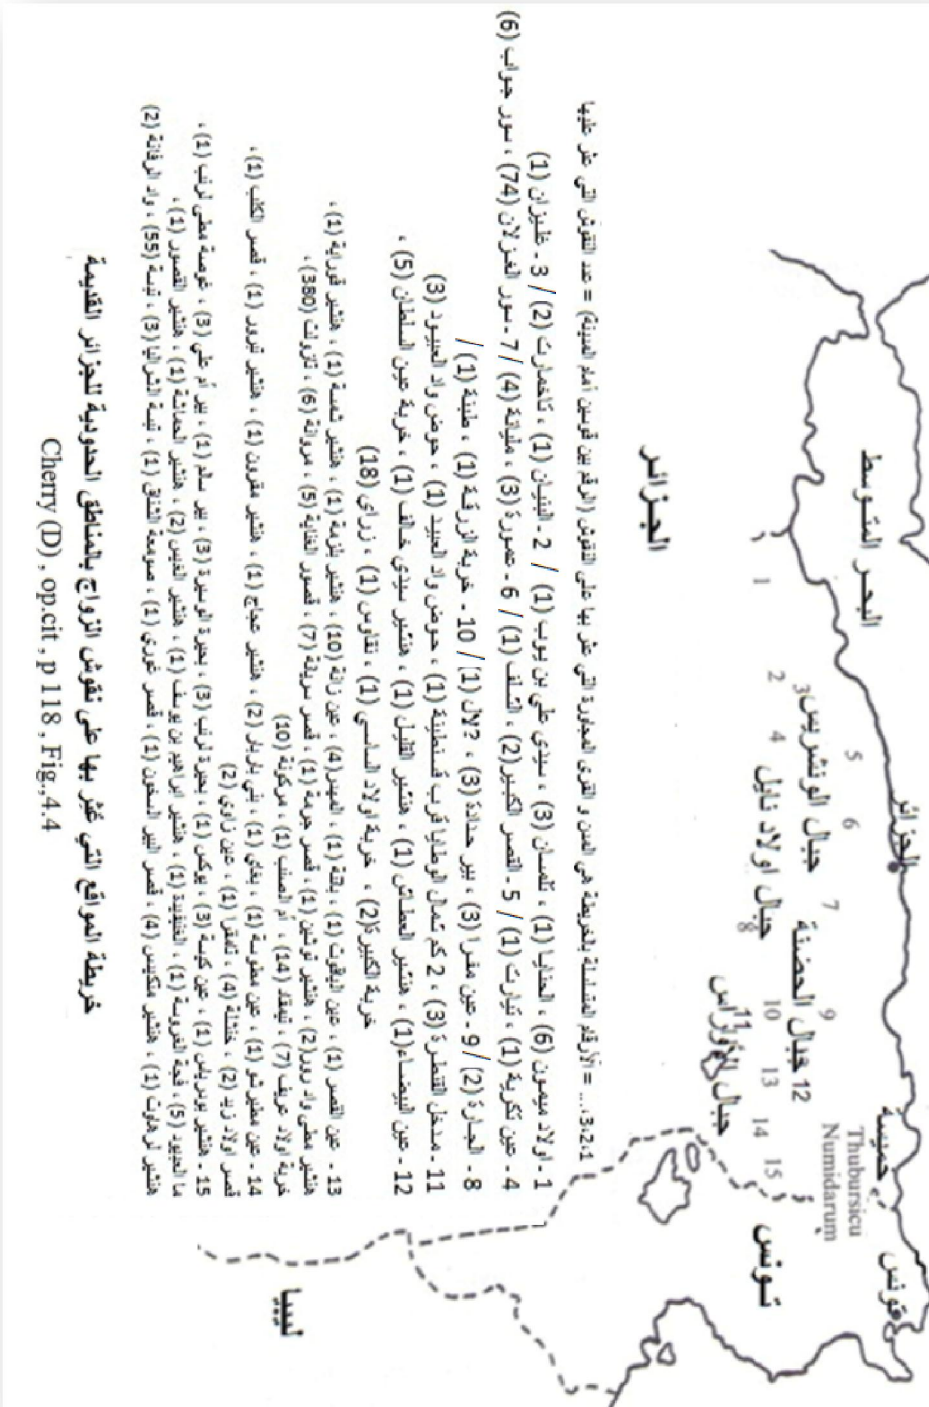 البحر المتوسط
الجزائر
خميسة
تونس
Thubursicu
Numidarum
جبال الونشريس
جبال اولاد نايل
جبال الحضنة
جبال الأوراس
1
2
3
4
5
6
7
8
9
10
11
12
13
14
15
تونس
الجزائر
ليبيا
1،2،3،... = الأرقام المتسلسلة بالخريطة هي المدن و القرى المجاورة التي عثر بها على النقوش (الرقم بين قوسين أمام المدينة) = عدد النقوش التي عثر عليها
1 - اولاد ميمون (6) ، الحنايا (1) ، تلمسان (3) ، سيدي علي بن يوب (1) / 2 - البنيان (1) ، تاخمارت (2) / 3 - غليزان (1)
4 - عين تكرية (1) ، تيارت (1) / 5 - القصر الكبير (2) ، (1) / 6 - عمورة (3) ، مليانة (4) / 7 - سور الغزلان (74) ، سور جواب (6)
8 - الجازة (2) / 9 - عين مقرا (3) ، بير حدادة (3) ، ?لال (1) / 10 - خربة الزرقة (1) ، طبنة (1) /
11 - مدخل القنطرة (3) ، 2 كم شمال الوطايا قرب قسنطينة (1) ، حوض واد العبيد (1) ، حوض واد العبيود (3)
12 - عين البيضاء (1) ، هنشير العطاش (1) ، هنشير القليل (1) ، هنشير سيدي خالف (1) ، خربة عين السلطان (5) ،
خربة الكبيرة (2) ، خربة اولاد الساسي (1) ، نقاوس (1) ، زراي (18)
13 - عين القصر (1) ، عين الياقوت (1) ، باتنة (1) ، (4) ، عين زانة (10) ، هنشير بلزمة (1) ، هنشير ثمسة (1) ، هنشير فوراية (1) ،
هنشير مطى واد رور (2) ، هنشير توشين (1) ، قصر جرمة (1) ، قصر سريانة (7) ، قصور الغناية (5) ، مروانة (6) ، تازولت (380) ،
خربة اولاد عريف (7) ، تيمقاد (14) ، أم الصنب (1) ، مركونة (10)
14 - عين مطير شو (1) ، عين مطوسة (1) ، بغاي (1) ، بني باربار (2) ، هنشير عجاج (1) ، هنشير مقرون (1) ، هنشير تبرور (1) ، قصر الكلب (1) ،
قصر اولاد زيد (2) ، خنشلة (4) ، تامقرا (1) ، عين زاوي (2)
15 - هنشير بوسرياس (1) ، عين كيسة (3) ، بوكس (1) ، بحيرة لرنب (3) ، بحيرة الوسيرة (3) ، بير سالم (1) ، بير أم علي (3) ، غوصة مطى لرنب (1) ،
ما العبيود (5) ، فجة الغروسة (1) ، (1) ، هنشير ابراهيم بن يوسف (1) ، هنشير الغيس (2) ، هنشير الحماشة (1) ، هنشير القصور (1) ،
هنشير لرهاوت (1) ، هنشير متكيس (4) ، قصر البير السخون (1) ، قصر غوري (1) ، صومعة الشناق (1) ، تبسة الثراليا (3) ، تبسة (55) ، واد الرفانة (2)
خريطة المواقع التي عثر بها على نقوش الزواج بالمناطق الحدودية للجزائر القديمة
Cherry (D) , op.cit , p 118 , Fig.,4.4